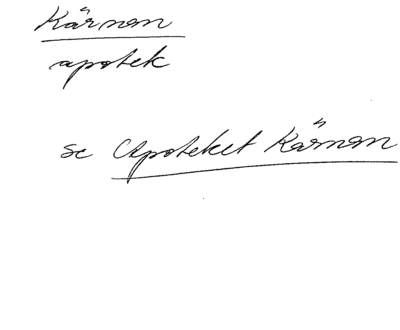 Kärnan
apotek
se Apoteket Kärnan